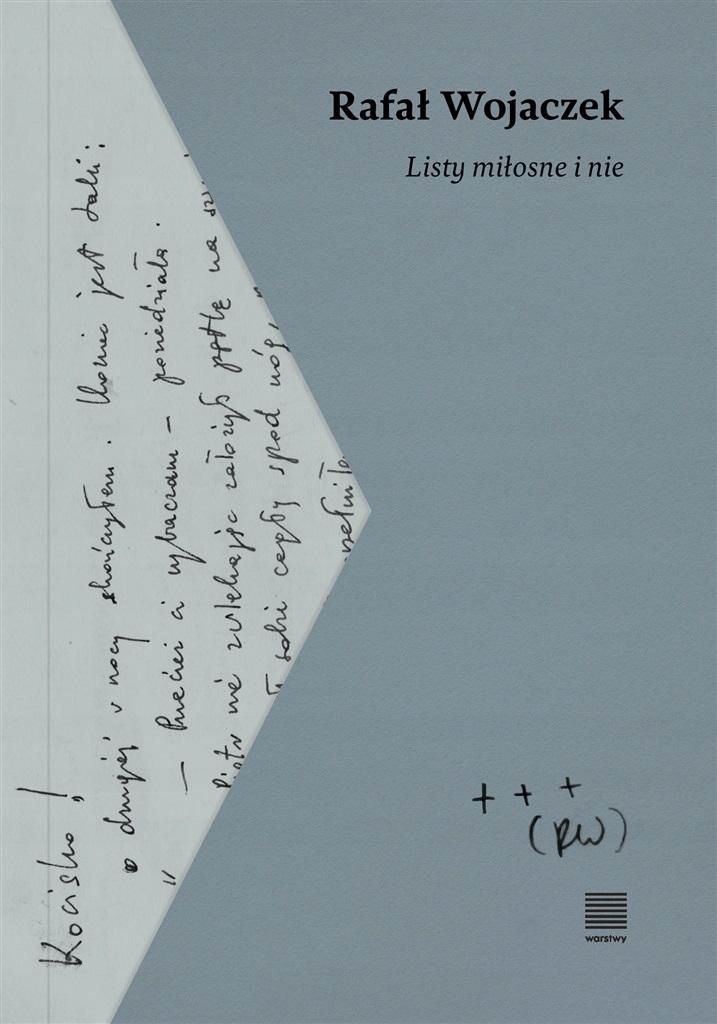 Rafał Wojaczek
Listy miłosne i nie
Kocisko!
o drugiej w nocy skończyłem. Koniec jest taki:
" — Przecież ci wybaczam — powiedziała.
Piotr nie zwlekając założył pętlę na
sobie cegły spod nóg,
+ + +
(RW)
warstwy